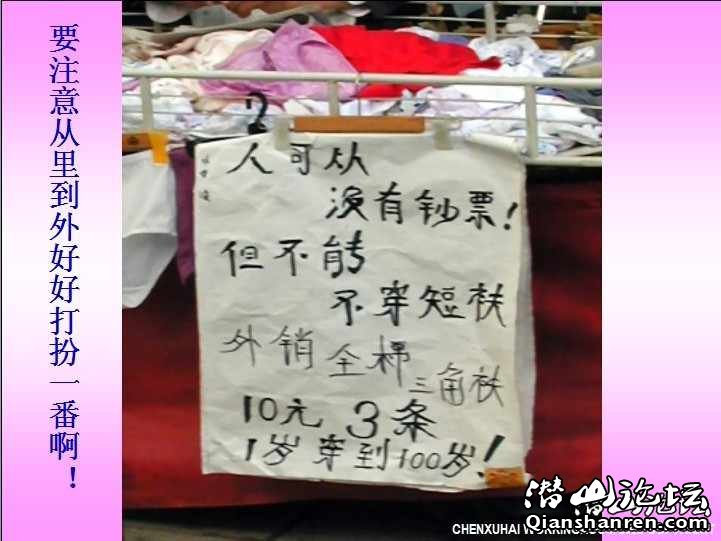 要注意从里到外好好打扮一番啊！
人可以
没有钞票!
但不能
不穿短裤
外销全棉
三角裤
10元 3条
1岁穿到100岁!
潜山论坛
Qianshanren.com
CHENXUHAI WORKING